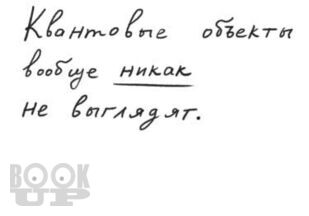 Квантовые объекты
вообще никак
не выглядят.
BOOK
UP